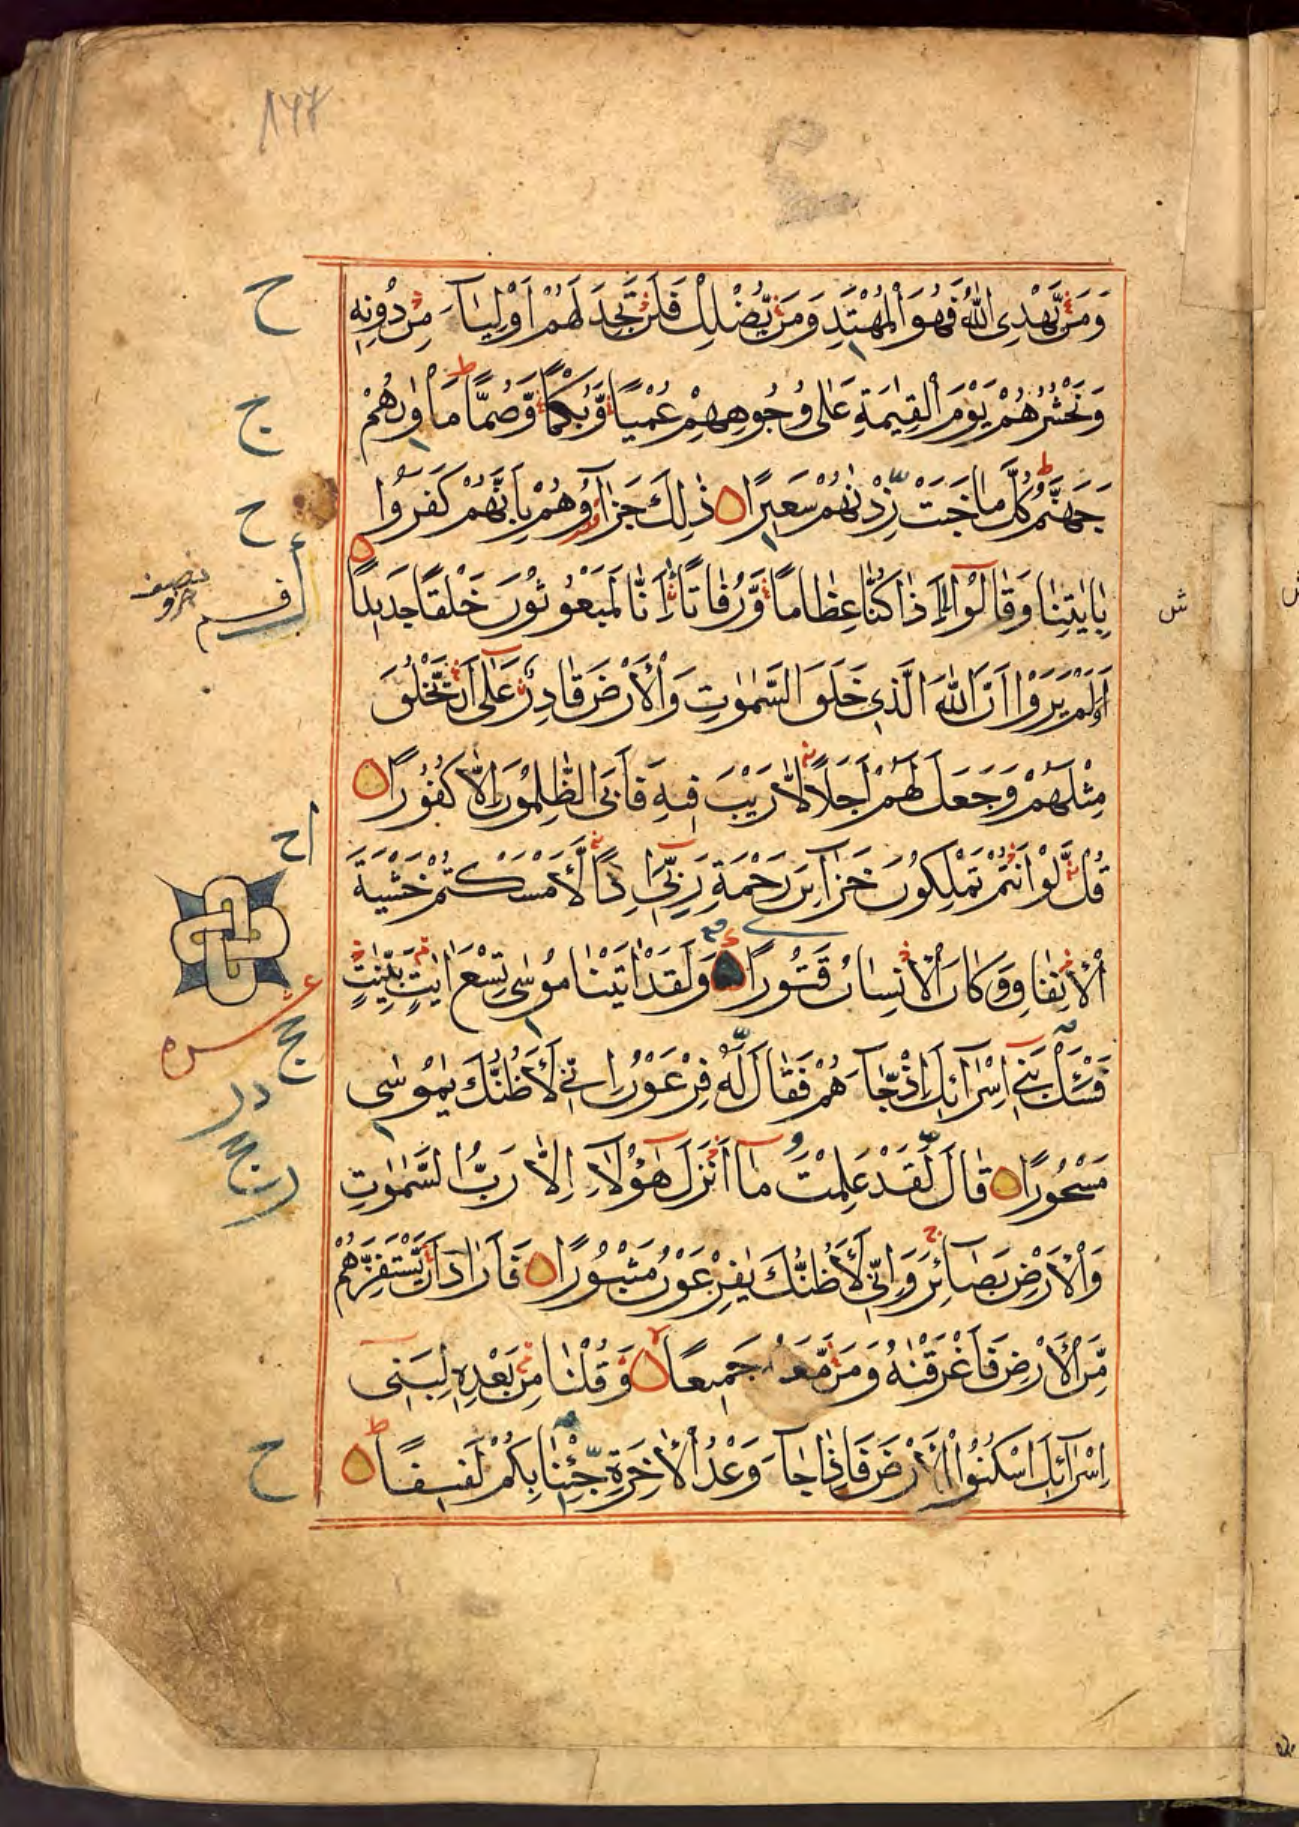 ١٩٧
وَمَنْ يَّهْدِى اللّٰهُ فَهُوَ الْمُهْتَدِ وَمَنْ يُّضْلِلْ فَلَنْ تَجِدَ لَهُمْ اَوْلِيَآءَ مِنْ دُوْنِهٖ
وَنَحْشُرُهُمْ يَوْمَ الْقِيٰمَةِ عَلٰى وُجُوهِهِمْ عُمْيًا وَّبُكْمًا وَّصُمًّا ط مَاْوٰىهُمْ
جَهَنَّمُ ط كُلَّمَا خَبَتْ زِدْنٰهُمْ سَعِيرًا ۝ ذٰلِكَ جَزَآؤُهُمْ بِاَنَّهُمْ كَفَرُوا
بِاٰيٰتِنَا وَقَالُوْٓا ءَاِذَا كُنَّا عِظَامًا وَّرُفَاتًا ءَاِنَّا لَمَبْعُوثُونَ خَلْقًا جَدِيدًا ۝
اَوَلَمْ يَرَوْا اَنَّ اللّٰهَ الَّذِى خَلَقَ السَّمٰوٰتِ وَالْاَرْضَ قَادِرٌ عَلٰٓى اَنْ يَّخْلُقَ
مِثْلَهُمْ وَجَعَلَ لَهُمْ اَجَلًا لَّا رَيْبَ فِيهِ فَاَبَى الظّٰلِمُونَ اِلَّا كُفُورًا ۝
قُلْ لَّوْ اَنْتُمْ تَمْلِكُونَ خَزَآئِنَ رَحْمَةِ رَبِّىٓ اِذًا لَّاَمْسَكْتُمْ خَشْيَةَ
الْاِنْفَاقِ وَكَانَ الْاِنْسَانُ قَتُورًا ۝ وَلَقَدْ اٰتَيْنَا مُوسٰى تِسْعَ اٰيٰتٍ بَيِّنٰتٍ
فَسْئَلْ بَنِىٓ اِسْرَآئِلَ اِذْ جَآءَهُمْ فَقَالَ لَهٗ فِرْعَوْنُ اِنِّى لَاَظُنُّكَ يٰمُوسٰى
مَسْحُورًا ۝ قَالَ لَقَدْ عَلِمْتَ مَآ اَنْزَلَ هٰٓؤُلَآءِ اِلَّا رَبُّ السَّمٰوٰتِ
وَالْاَرْضِ بَصَآئِرَ ج وَاِنِّى لَاَظُنُّكَ يٰفِرْعَوْنُ مَثْبُورًا ۝ فَاَرَادَ اَنْ يَّسْتَفِزَّهُمْ
مِّنَ الْاَرْضِ فَاَغْرَقْنٰهُ وَمَنْ مَّعَهٗ جَمِيعًا ۝ وَّقُلْنَا مِنْ بَعْدِهٖ لِبَنِىٓ
اِسْرَآئِلَ اسْكُنُوا الْاَرْضَ فَاِذَا جَآءَ وَعْدُ الْاٰخِرَةِ جِئْنَا بِكُمْ لَفِيفًا ط ۝
ح
ج
ح
نصف حزو
ش
اح
عشره
ج
در
ح